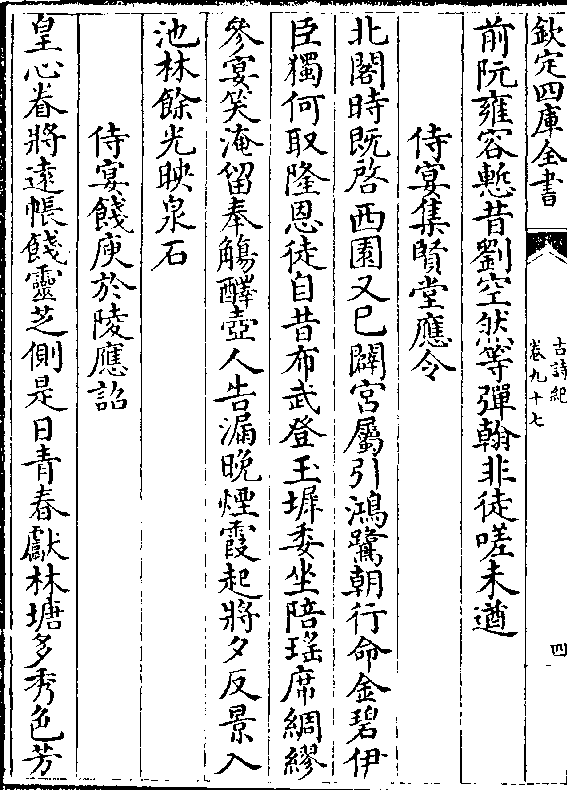 欽定四庫全書
古詩紀
卷九十七
四
前阮雍容慙昔劉空然等彈翰非徒嗟未遒
侍宴集賢堂應令
北閣時既啓西園又已闢宮屬引鴻鷺朝行命金碧伊
臣獨何取隆恩徒自昔布武登玉墀委坐陪瑤席綢繆
參宴笑淹留奉觴醳壺人告漏晚煙霞起將夕反景入
池林餘光映泉石
侍宴餞庾於陵應詔
皇心眷將遠帳餞靈芝側是日青春獻林塘多秀色芳